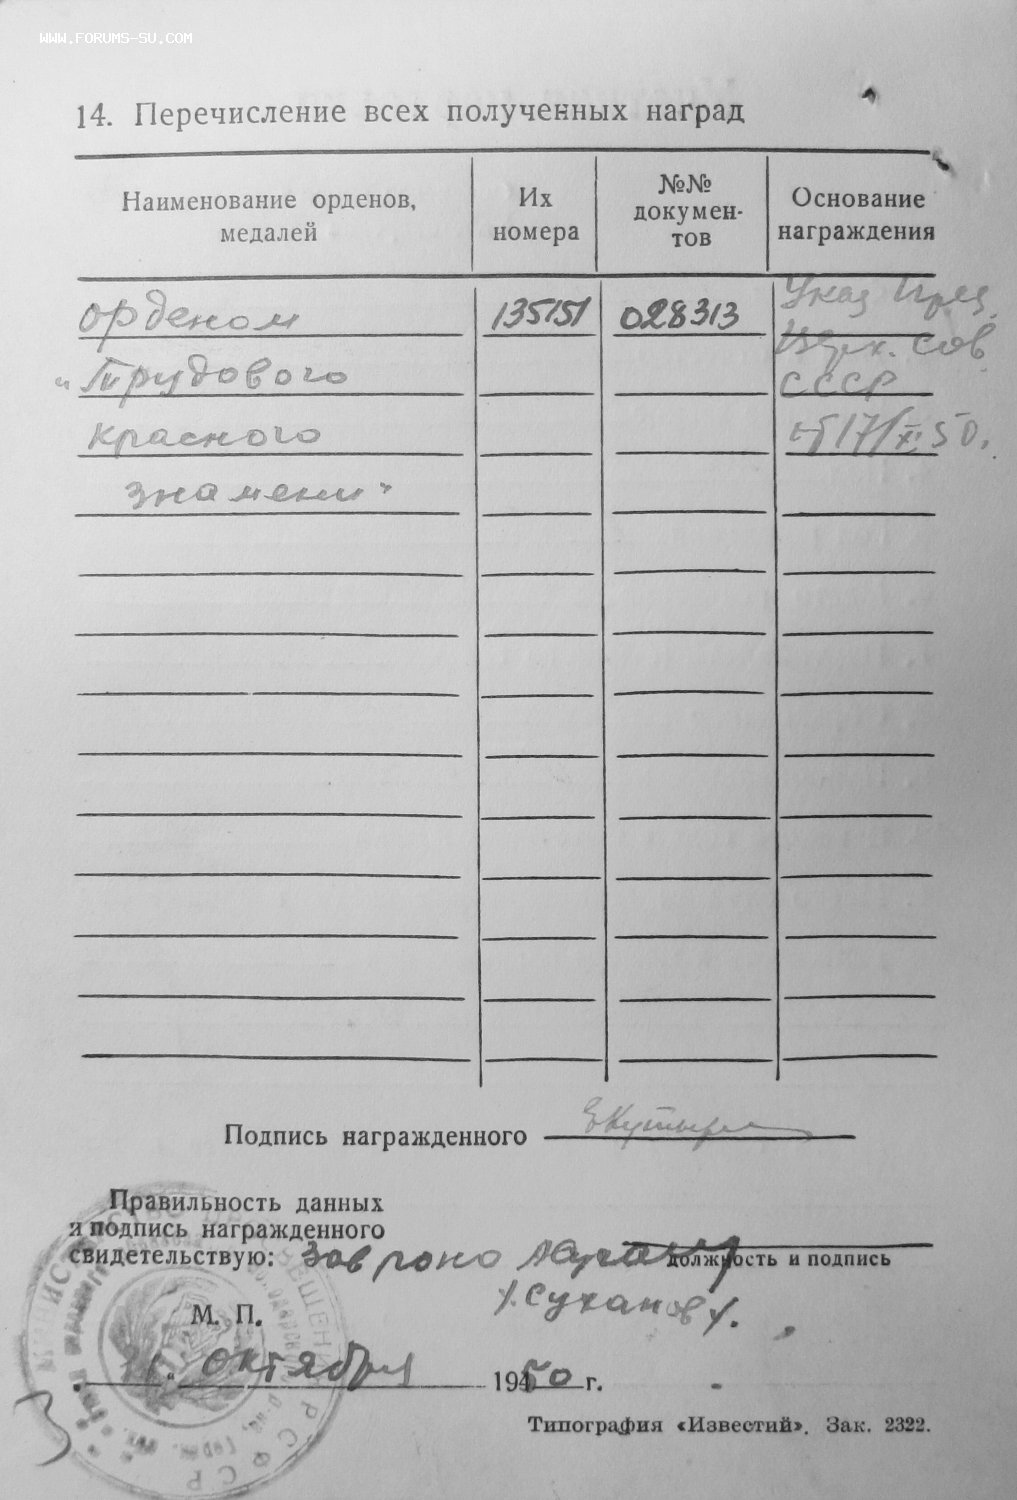 WWW.FORUMS-SU.COM
14. Перечисление всех полученных наград
Наименование орденов, медалей
Их номера
№№ докумен-тов
Основание награждения
орденом 135151 028313 Указ През.
Верх. Сов
"Трудового СССР
красного от 17/XI 50.
знамени"
Подпись награжденного
Правильность данных
и подпись награжденного
свидетельствую: Зав роно
должность и подпись
/.Суханов/.
М. П.
" октября 1950 г.
Типография «Известий». Зак. 2322.